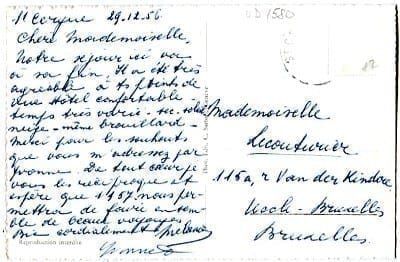 St Cergue 29.12.56
Chère Mademoiselle,
Notre séjour ici va
à sa fin. Il a été très
agréable à ts points de
vue Hôtel confortable -
temps très varié - sec. soleil
neige - même brouillard -
Merci pour les souhaits
que vous m'adressez par
Yvonne. De tout coeur je
vous les réciproque et
espère que 1957 nous per-
mettra de faire en sem-
ble de beaux voyages.
Bien cordialement
Yvonne
Reproduction interdite
UD 1580
12
Mademoiselle
Lecouturier
115a, r Van der Kindere
Uccle - Bruxelles
Bruxelles.